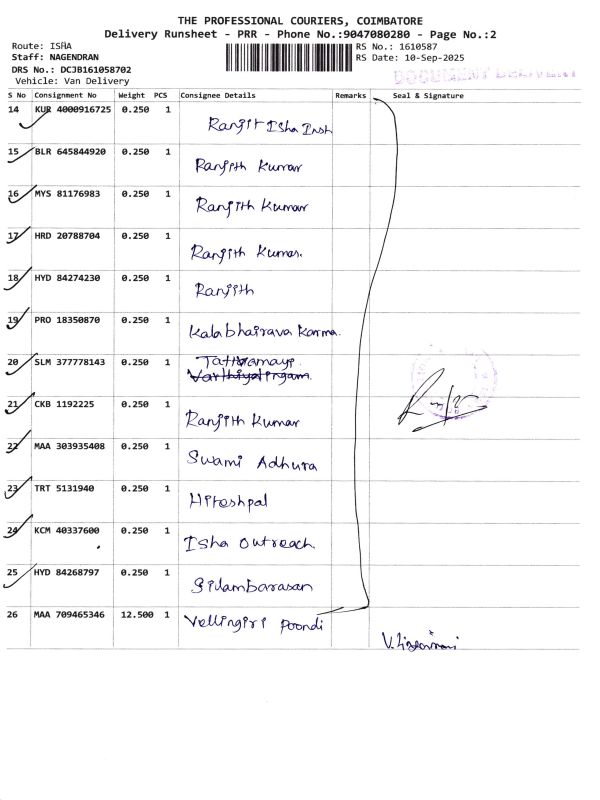 THE PROFESSIONAL COURIERS, COIMBATORE
Delivery Runsheet - PRR - Phone No.:9047080280 - Page No.:2
Route: ISHA
Staff: NAGENDRAN
DRS No.: DCJB161058702
Vehicle: Van Delivery
RS No.: 1610587
RS Date: 10-Sep-2025
DOCUMENT DELIVERY
S No Consignment No Weight PCS Consignee Details Remarks Seal & Signature
14 KUR 4000916725 0.250 1 Ranjit Isha Inst
15 BLR 645844920 0.250 1 Ranjith Kumar
16 MYS 81176983 0.250 1 Ranjith Kumar
17 HRD 20788704 0.250 1 Ranjith Kumar.
18 HYD 84274230 0.250 1 Ranjith
19 PRO 18350870 0.250 1 Kalabhairava Karma.
20 SLM 377778143 0.250 1 Tattvamayi
21 CKB 1192225 0.250 1 Ranjith Kumar
22 MAA 303935408 0.250 1 Swami Adhura
23 TRT 5131940 0.250 1 Hiteshpal
24 KCM 40337600 0.250 1 Isha Outreach.
25 HYD 84268797 0.250 1 Silambarasan
26 MAA 709465346 12.500 1 Vellingiri Poondi